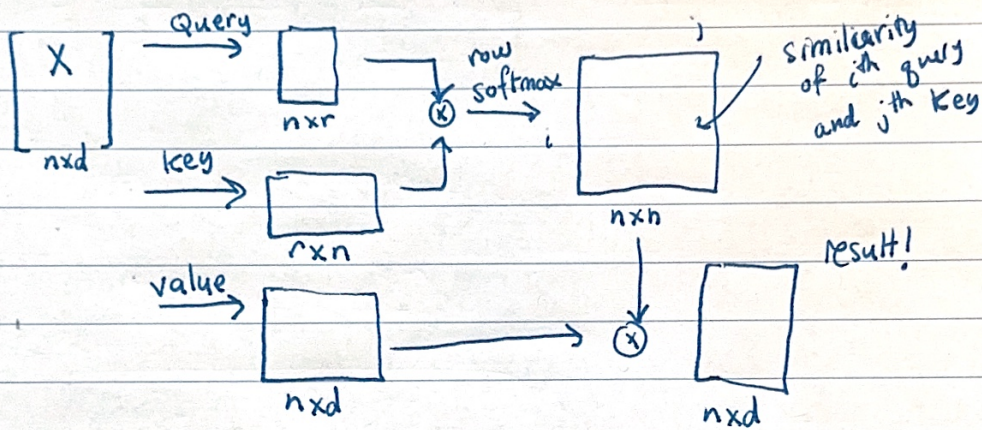 X
nxd
Query
nxr
key
rxn
value
nxd
row
softmax
x
i
j
nxn
similarity
of ith query
and jth key
x
result!
nxd